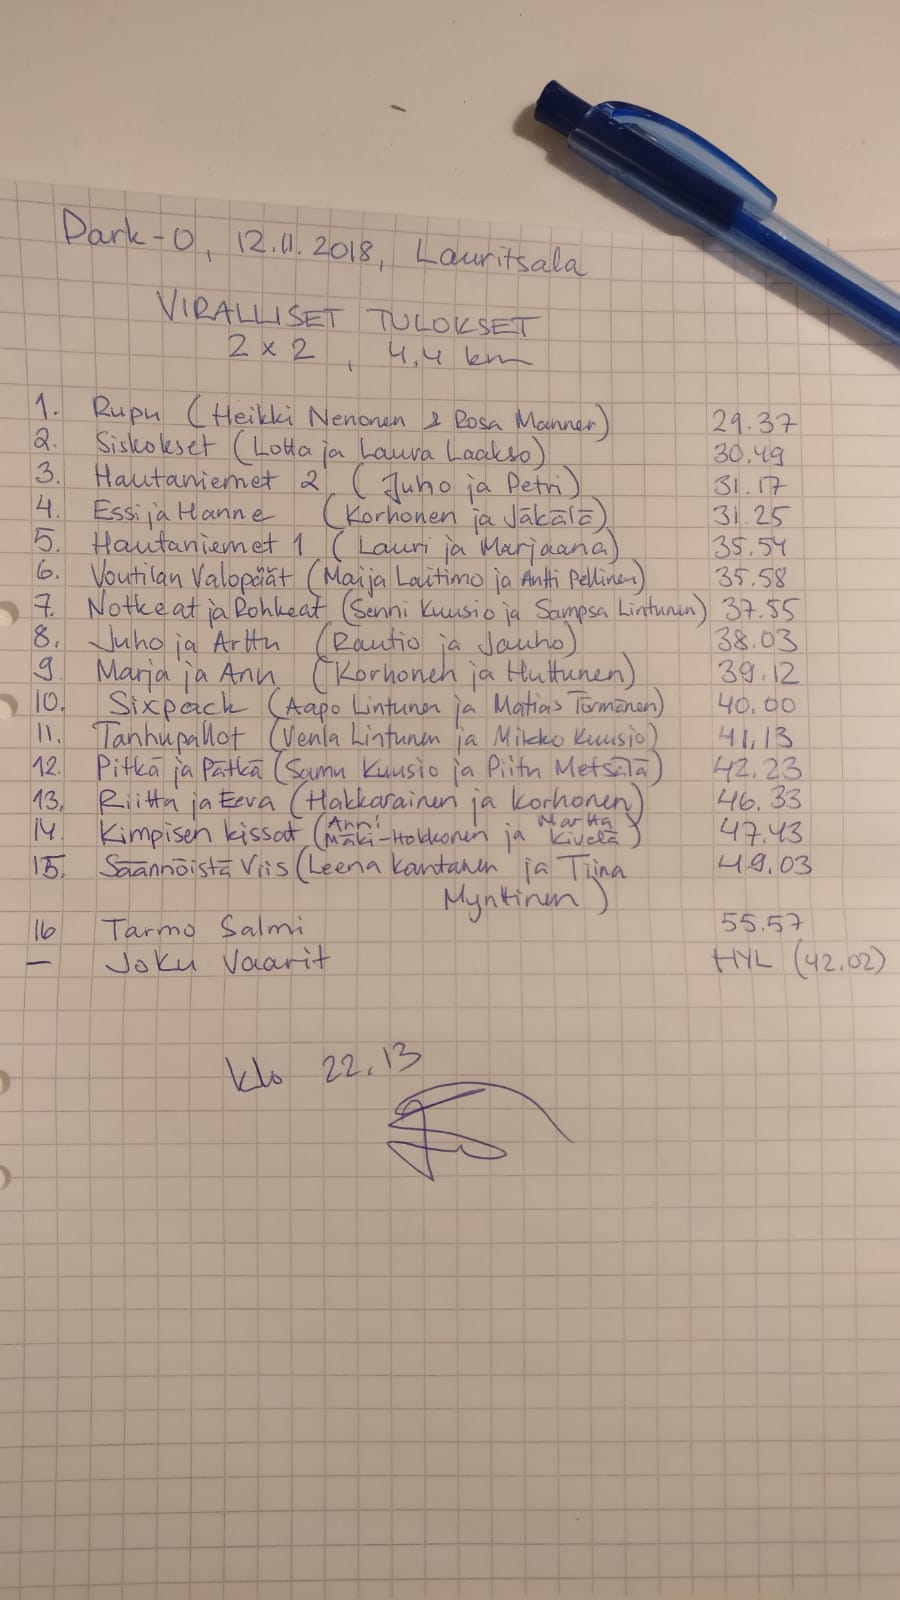 Dark-O, 12.11.2018, Lauritsala
VIRALLISET TULOKSET
2 x 2, 4,4 km
1. Rupu (Heikki Nenonen & Rosa Manner) 29.37
2. Siskokset (Lotta ja Laura Laakso) 30.49
3. Hautaniemet 2 (Juho ja Petri) 31.17
4. Essi ja Hanne (Korhonen ja Jäkälä) 31.25
5. Hautaniemet 1 (Lauri ja Marjaana) 35.54
6. Voutilan Valopäät (Maija Laitimo ja Antti Pellinen) 35.58
7. Notkeat ja Rohkeat (Senni Kuusio ja Sampsa Lintunen) 37.55
8. Juho ja Arttu (Rautio ja Jauho) 38.03
9 Marja ja Ann (Korhonen ja Huttunen) 39.12
10. Sixpack (Aapo Lintunen ja Matias Törmänen) 40.00
11. Tanhupallot (Venla Lintunen ja Mikko Kuusio) 41,13
12. Pitkä ja Pätkä (Samu Kuusio ja Piitu Metsälä) 42.23
13, Riitta ja Eeva (Hakkarainen ja Korhonen) 46.33
14. Kimpisen kissat (Anni Mäki-Hokkonen ja Martta Kivelä) 47.43
15. Säännöistä Viis (Leena Kantanen ja Tiina
Mynttinen) 49.03
16 Tarmo Salmi 55.57
— Joku Vaarit HYL (42.02)
klo 22.13